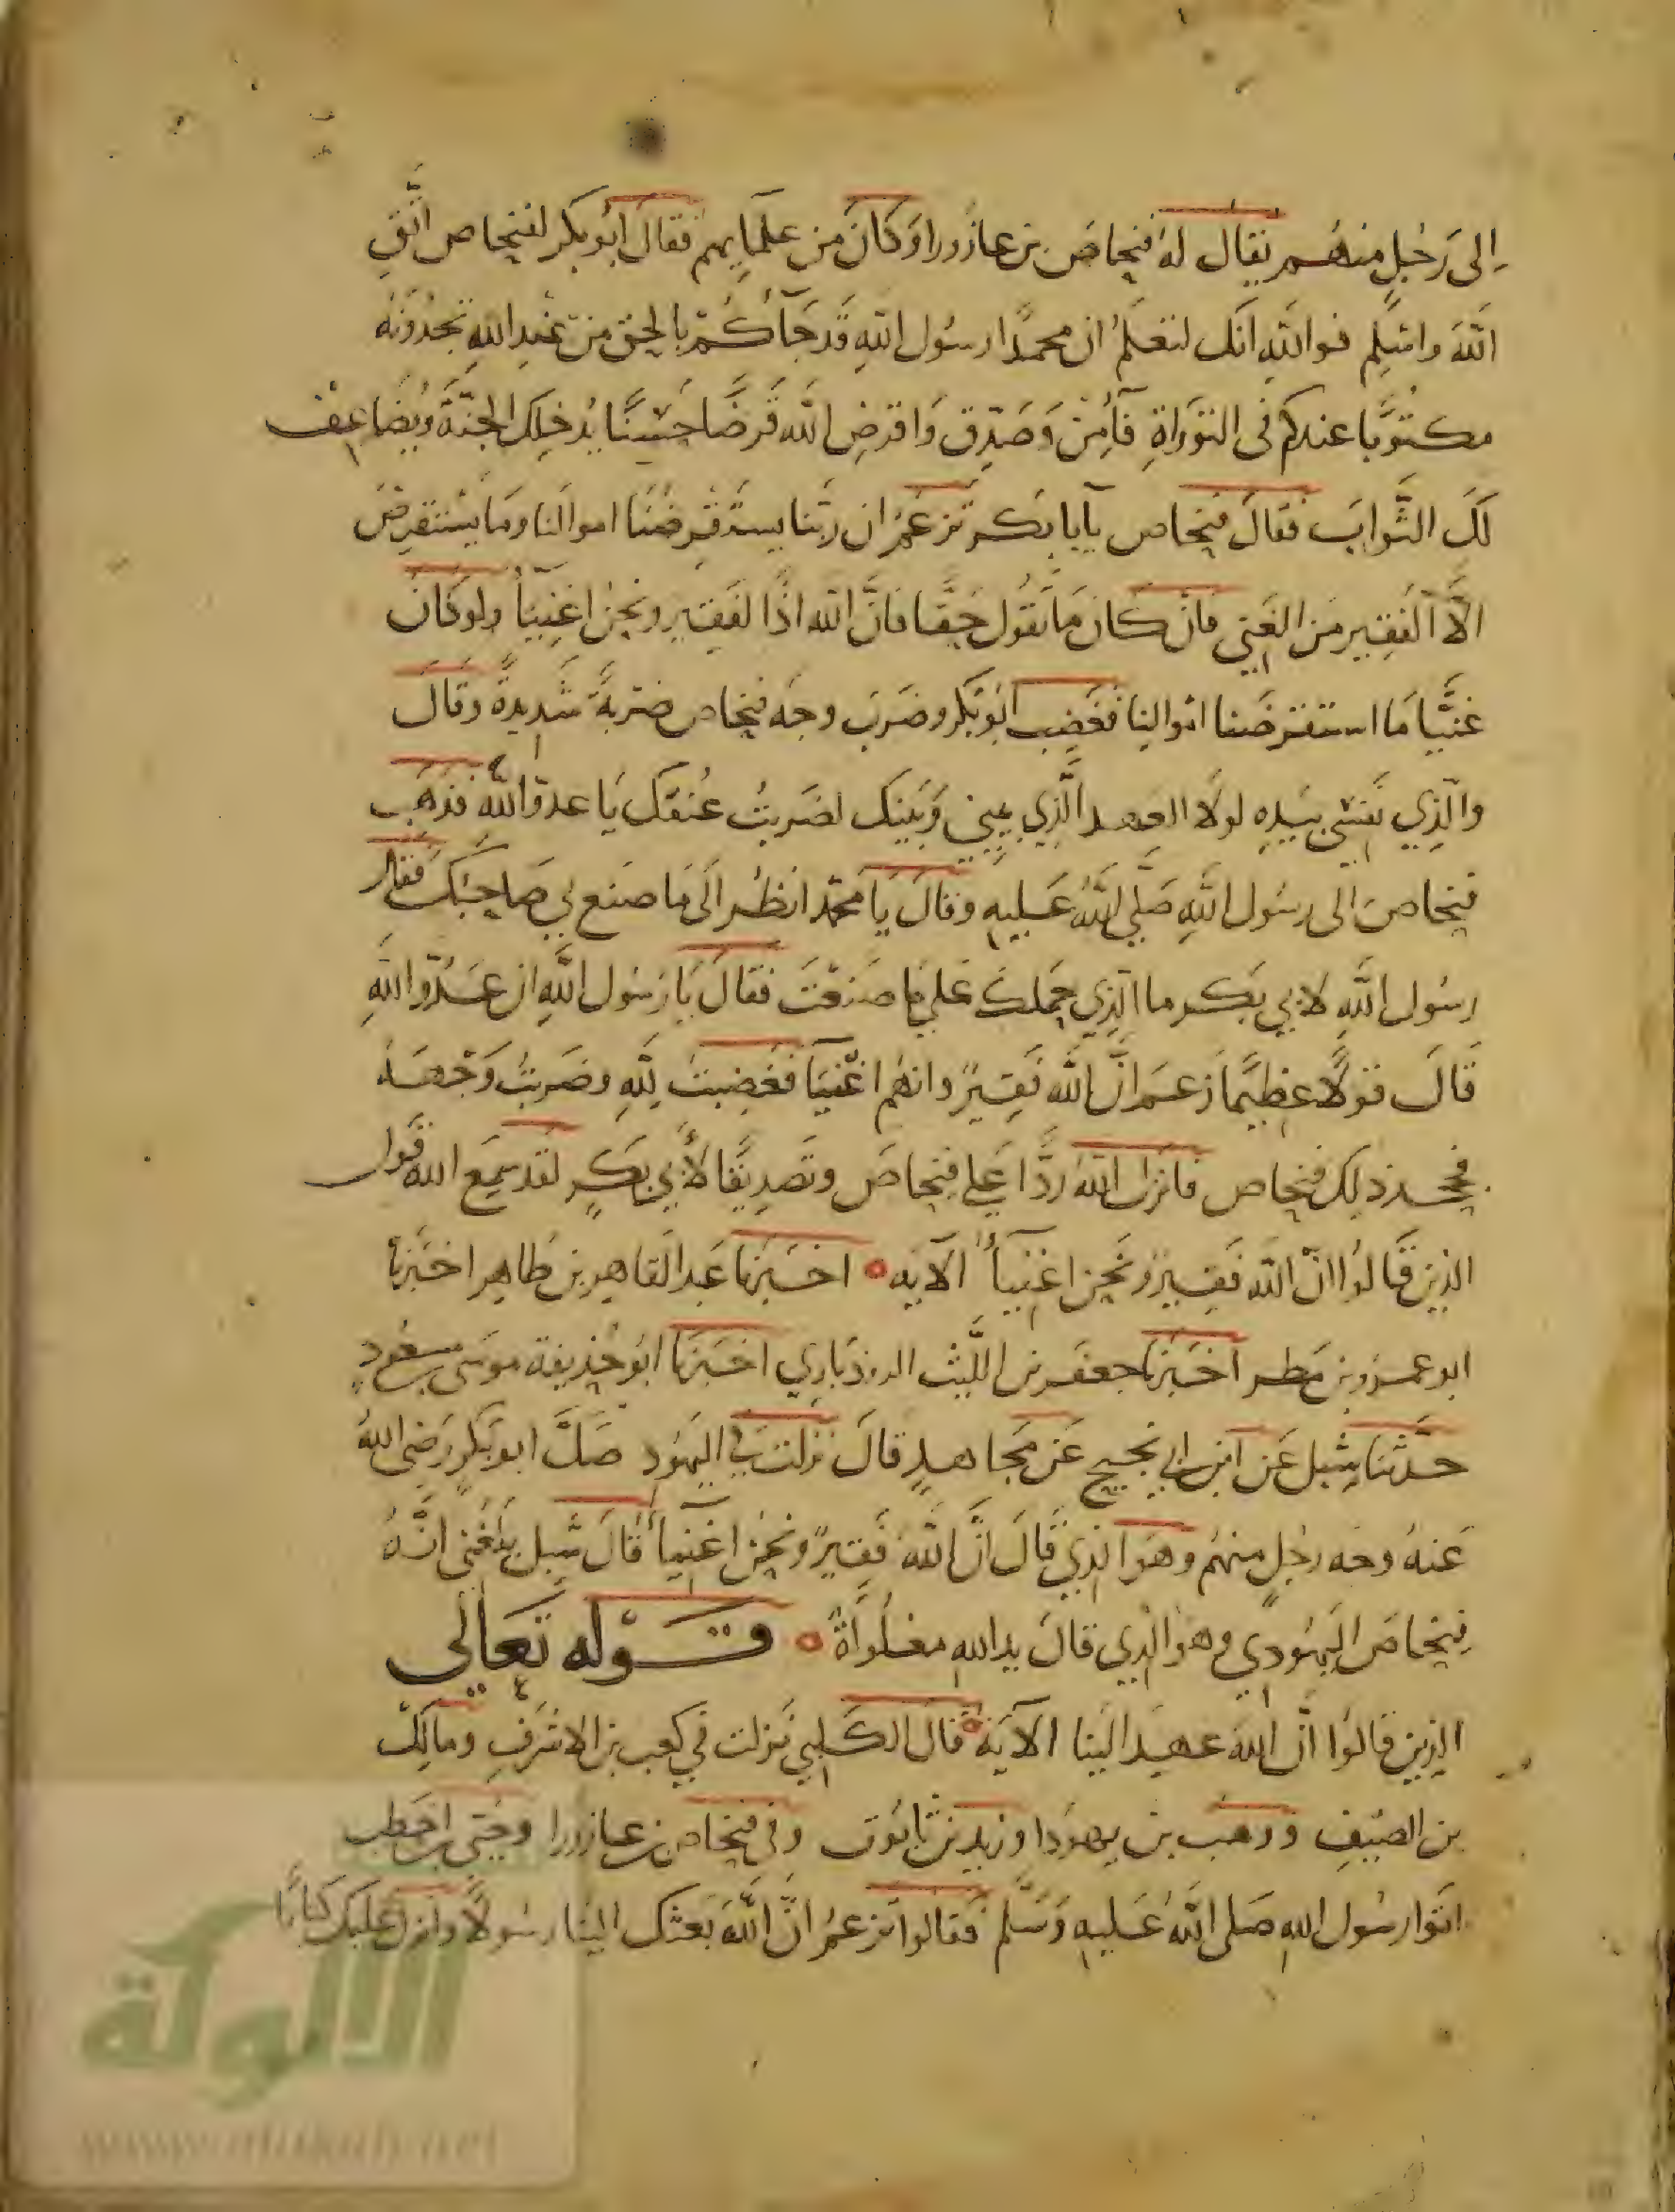 إلى رجل منهم يقال له فنحاص بن عازورا وكان من علمايهم فقال أبو بكر لفنحاص اتق
الله واسلم فوالله انك لتعلم ان محمدا رسول الله قد جآءكم بالحق من عند الله تجدونه
مكتوبا عندكم في التوراة فآمن وصدق واقرض الله قرضا حسنا يدخلك الجنة ويضاعف
لك الثواب فقال فنحاص يآبا بكر تزعم ان ربنا يستقرضنا اموالنا وما يستقرض
الا الفقير من الغني فان كان ما تقول حقا فان الله اذا لفقير ونحن اغنيآ ولو كان
غنيا ما استقرضنا اموالنا فغضب ابو بكر وضرب وجه فنحاص ضربة شديدة وقال
والذي نفسي بيده لولا العهد الذي بيني وبينك لضربت عنقك يا عدو الله فذهب
فنحاص الى رسول الله صلى الله عليه وقال يا محمد انظر الى ما صنع بي صاحبك فقال
رسول الله لابي بكر ما الذي حملك على ما صنعت فقال يا رسول الله ان عدو الله
قال قولا عظيما زعم ان الله فقير وانهم اغنيآ فغضبت لله وضربت وجهه
فجحد ذلك فنحاص فانزل الله ردا على فنحاص وتصديقا لأبي بكر لقد سمع الله قول
الذين قالوا ان الله فقير ونحن اغنيآء الآية اخبرنا عبد القاهر بن طاهر اخبرنا
ابو عمرو بن مطر اخبرنا جعفر بن الليث الروذباري اخبرنا ابو حذيفة موسى بن مسعود
حدثنا شبل عن ابن ابي نجيح عن مجاهد قال نزلت في اليهود صك ابو بكر رضي الله
عنه وجه رجل منهم وهو الذي قال ان الله فقير ونحن اغنيآء قال شبل بلغني انه
فنحاص اليهودي وهو الذي قال يد الله مغلولة قوله تعالى
الذين قالوا ان الله عهد الينا الآية قال الكلبي نزلت في كعب بن الاشرف ومالك
بن الصيف ووهب بن يهودا وزيد بن تابوت وفي فنحاص بن عازورا وحيي بن اخطب
اتوا رسول الله صلى الله عليه وسلم فقالوا تزعم ان الله بعثك الينا رسولا وانزل عليك كتابا
الألوكة
www.alukah.net